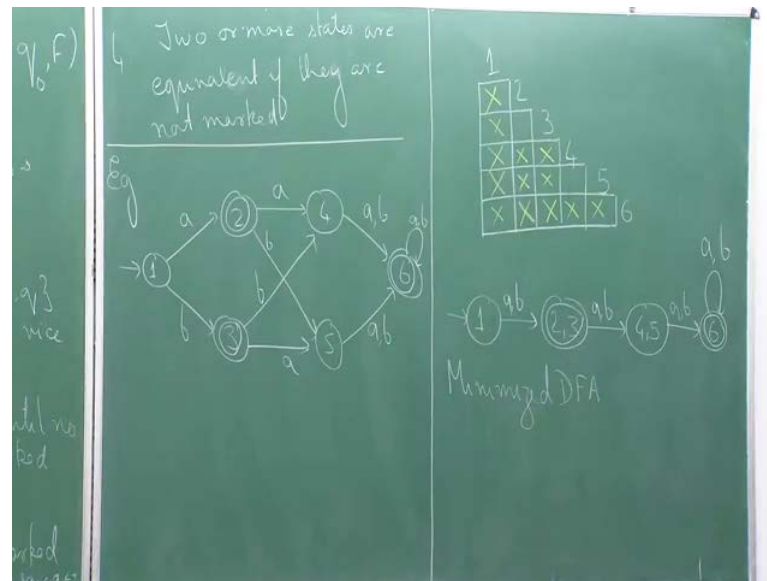 q₀, F)
s
, q}
vice
until no
ked
marked
4 Two or more states are
equivalent if they are
not marked
Eg
a
2
a
4
a,b
a,b
b
1
b
6
b
3
a
5
a,b
1
X 2
X 3
X X X 4
X X X 5
X X X X X 6
a,b
1 a,b 2,3 a,b 4,5 a,b 6
Minimized DFA